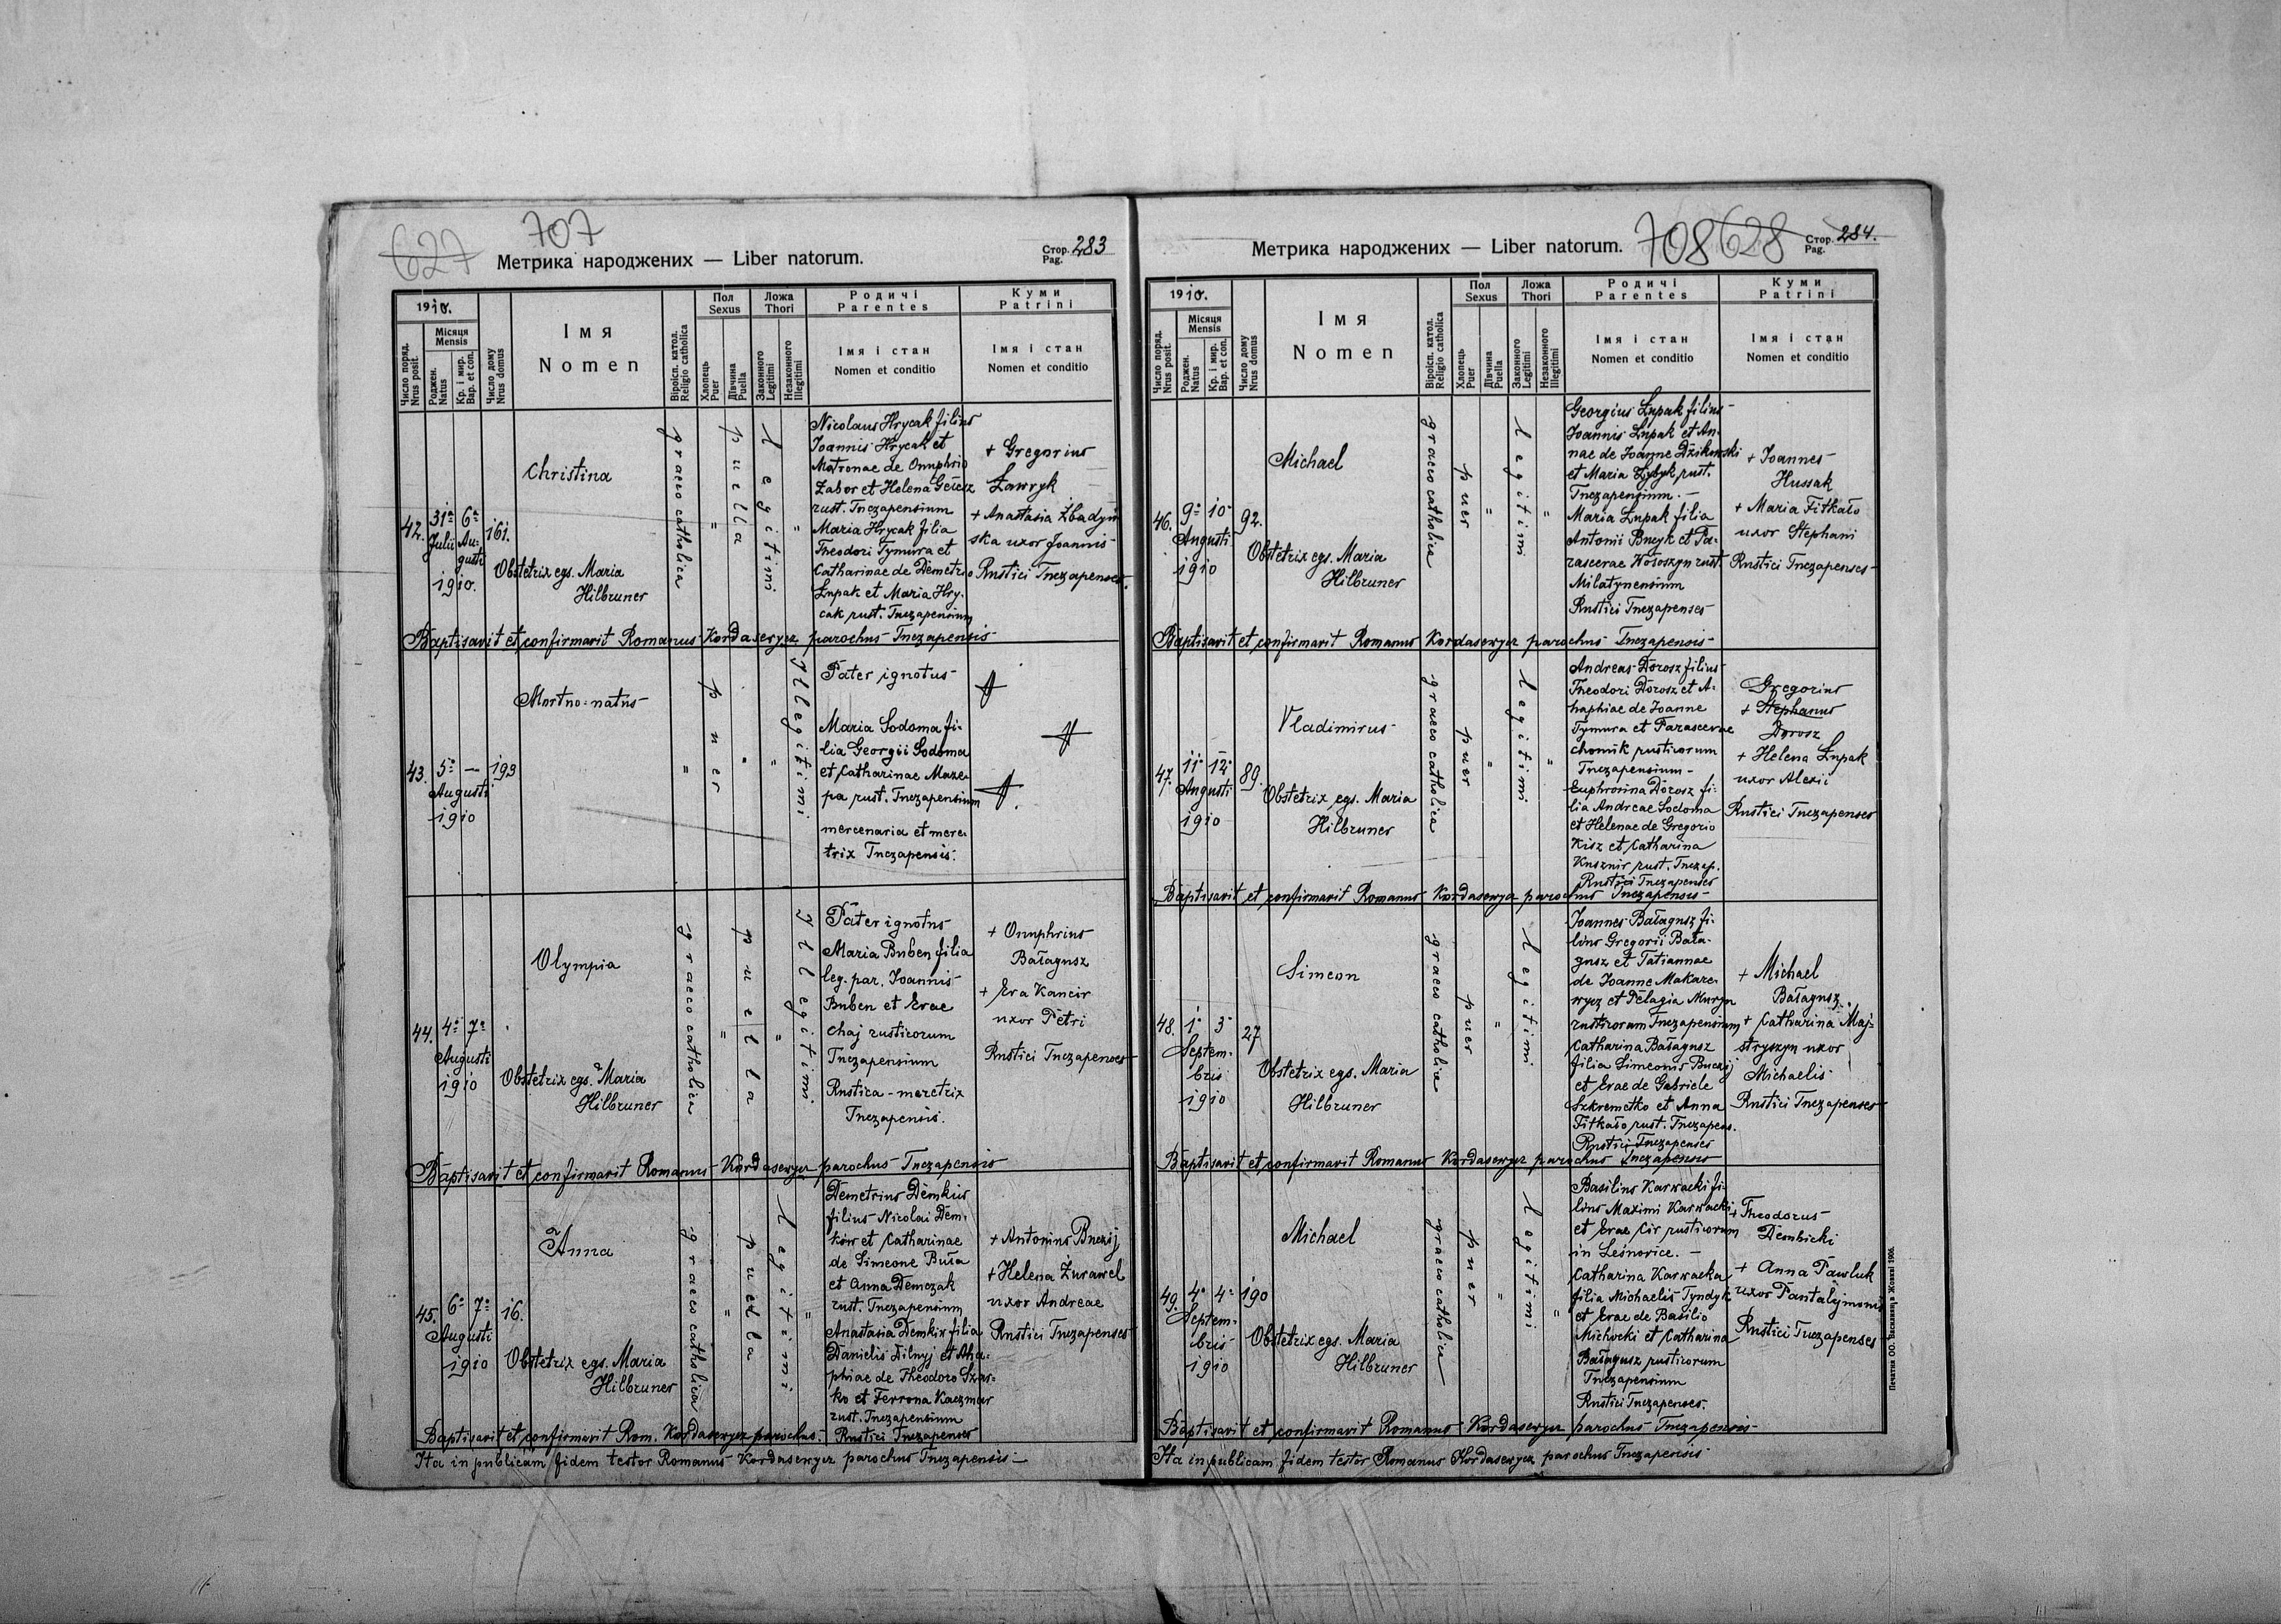 627
707
Метрика народжених — Liber natorum.
Стор. 283
Pag.
1910.
Місяця
Mensis
Число поряд.
Nrus posit.
Роджен.
Natus
Кр. і мир.
Bap. et con.
Число дому
Nrus domus
Імя
Nomen
Віроісп. катол.
Religio catholica
Пол
Sexus
Хлопець
Puer
Дівчина
Puella
Ложа
Thori
Законного
Legitimi
Незаконного
Illegitimi
Родичі
Parentes
Імя і стан
Nomen et conditio
Куми
Patrini
Імя і стан
Nomen et conditio
42.
31a 6a
Julii Au-
gusti
1910.
161.
Christina
Obstetrix egs. Maria
Hilbruner
graeco catholica
"
puella
legitimi
"
Nicolaus Hrycak filius
Joannis Hrycak et
Matronae de Onuphrio
Zabor et Helena
rust. Tuczapensium
Maria Hrycak filia
Theodori Tymura et
Catharinae de Demetrio
Łupak et Maria Hry-
cak rust. Tuczapensium
+ Gregorius
Ławryk
+ Anastasia Zbadyń
ska uxor Joannis
Rustici Tuczapenses.
Baptisavit et confirmavit Romanus Kordasewycz parochus Tuczapensis
43.
5a —
Augusti
1910
193
Mortuo-natus
"
puer
"
"
Illegitimi
Pater ignotus
Maria Sodoma fi-
lia Georgii Sodoma
et Catharinae Maze-
pa rust. Tuczapensium
mercenaria et mere-
trix Tuczapensis.
44.
4a 7a
Augusti
1910
Olympia
Obstetrix egs. Maria
Hilbruner
graeco catholica
"
puella
"
Illegitimi
Pater ignotus
Maria Buben filia
leg. par. Joannis
Buben et Evae
Chaj rusticorum
Tuczapensium
Rustica - meretrix
Tuczapensis.
+ Onuphrius
Bałagusz
+ Eva Kancir
uxor Petri
Rustici Tuczapenses
Baptisavit et confirmavit Romanus Kordasewycz parochus Tuczapensis
45.
6a 7a
Augusti
1910
16.
Anna
Obstetrix egs. Maria
Hilbruner
graeco catholica
"
puella
legitimi
"
Demetrius Demkiw
filius Nicolai Dem-
kiw et Catharinae
de Simeone Buła
et Anna Demczak
rust. Tuczapensium
Anastasia Demkiw filia
Danielis Dilnyj et Aha-
phiae de Theodoro
ko et Ferrona Kaczmar
rust. Tuczapensium
Rustici Tuczapenses
+ Antonius Buczij
+ Helena Żurawel
uxor Andreae
Rustici Tuczapenses
Baptisavit et confirmavit Rom. Kordasewycz parochus.
Ita in publicam fidem testor Romanus Kordasewycz parochus Tuczapensis
Метрика народжених — Liber natorum.
708
628
Стор. 284.
Pag.
1910.
Місяця
Mensis
Число поряд.
Nrus posit.
Роджен.
Natus
Кр. і мир.
Bap. et con.
Число дому
Nrus domus
Імя
Nomen
Віроісп. катол.
Religio catholica
Пол
Sexus
Хлопець
Puer
Дівчина
Puella
Ложа
Thori
Законного
Legitimi
Незаконного
Illegitimi
Родичі
Parentes
Імя і стан
Nomen et conditio
Куми
Patrini
Імя і стан
Nomen et conditio
46.
9a 10a
Augusti
1910
92.
Michael
Obstetrix egs. Maria
Hilbruner
graeco catholica
puer
"
legitimi
"
Georgius Łupak filius
Joannis Łupak et An-
nae de Joanne Dzikowski
et Maria Zybyk rust.
Tuczapensium. —
Maria Łupak filia
Antonii Bucyk et Pa-
rascevae Wołoszyn rust.
Milatynensium
Rustici Tuczapenses
+ Joannes
Hussak
+ Maria Fitkało
uxor Stephani
Rustici Tuczapenses
Baptisavit et confirmavit Romanus Kordasewycz parochus Tuczapensis
47.
11a 12a
Augusti
1910
89.
Vladimirus
Obstetrix egs. Maria
Hilbruner
graeco catholica
puer
"
legitimi
"
Andreas Dorosz filius
Theodori Dorosz et A-
haphiae de Joanne
Tymura et Parascevae
Chomik rusticorum
Tuczapensium —
Euphrosina Dorosz fi-
lia Andreae Sodoma
et Helenae de Gregorio
Kisz et Catharina
Kusznir rust. Tuczap.
Rustici Tuczapenses
Gregorius
+ Stephanus
Dorosz
+ Helena Łupak
uxor Alexii
Rustici Tuczapenses
Baptisavit et confirmavit Romanus Kordasewycz parochus Tuczapensis
48.
1a 3a
Septem-
bris
1910
27
Simeon
Obstetrix egs. Maria
Hilbruner
graeco catholica
puer
"
legitimi
Joannes Bałagusz fi-
lius Gregorii Bała-
gusz et Tatiannae
de Joanne Makare-
wycz et Pelagia Muryn
rusticorum Tuczapensium
Catharina Bałagusz
filia Simeonis Buczij
et Evae de Gabriele
Szkremetko et Anna
Fitkało rust. Tuczapens.
Rustici Tuczapenses
+ Michael
Bałagusz.
+ Catharina Maj-
stryszyn uxor
Michaelis
Rustici Tuczapenses
Baptisavit et confirmavit Romanus Kordasewycz parochus Tuczapensis
49.
4a 4a
Septem-
bris
1910
190
Michael
Obstetrix egs. Maria
Hilbruner
graeco catholica
puer
"
legitimi
"
Basilius Karwacki fi-
lius Maximi Karwacki
et Evae Cir rusticorum
in Leśnovice. —
Catharina Karwacka
filia Michaelis Tyndyk
et Evae de Basilio
Michocki et Catharina
Bałagusz rusticorum
Tuczapensium
Rustici Tuczapenses.
+ Theodorus
Dembicki
+ Anna Pawluk
uxor Pantalijmonis
Rustici Tuczapenses
Baptisavit et confirmavit Romanus Kordasewycz parochus Tuczapensis
Ita in publicam fidem testor Romanus Kordasewycz parochus Tuczapensis
Печатня ОО. Василиян в Жовкві 1906.